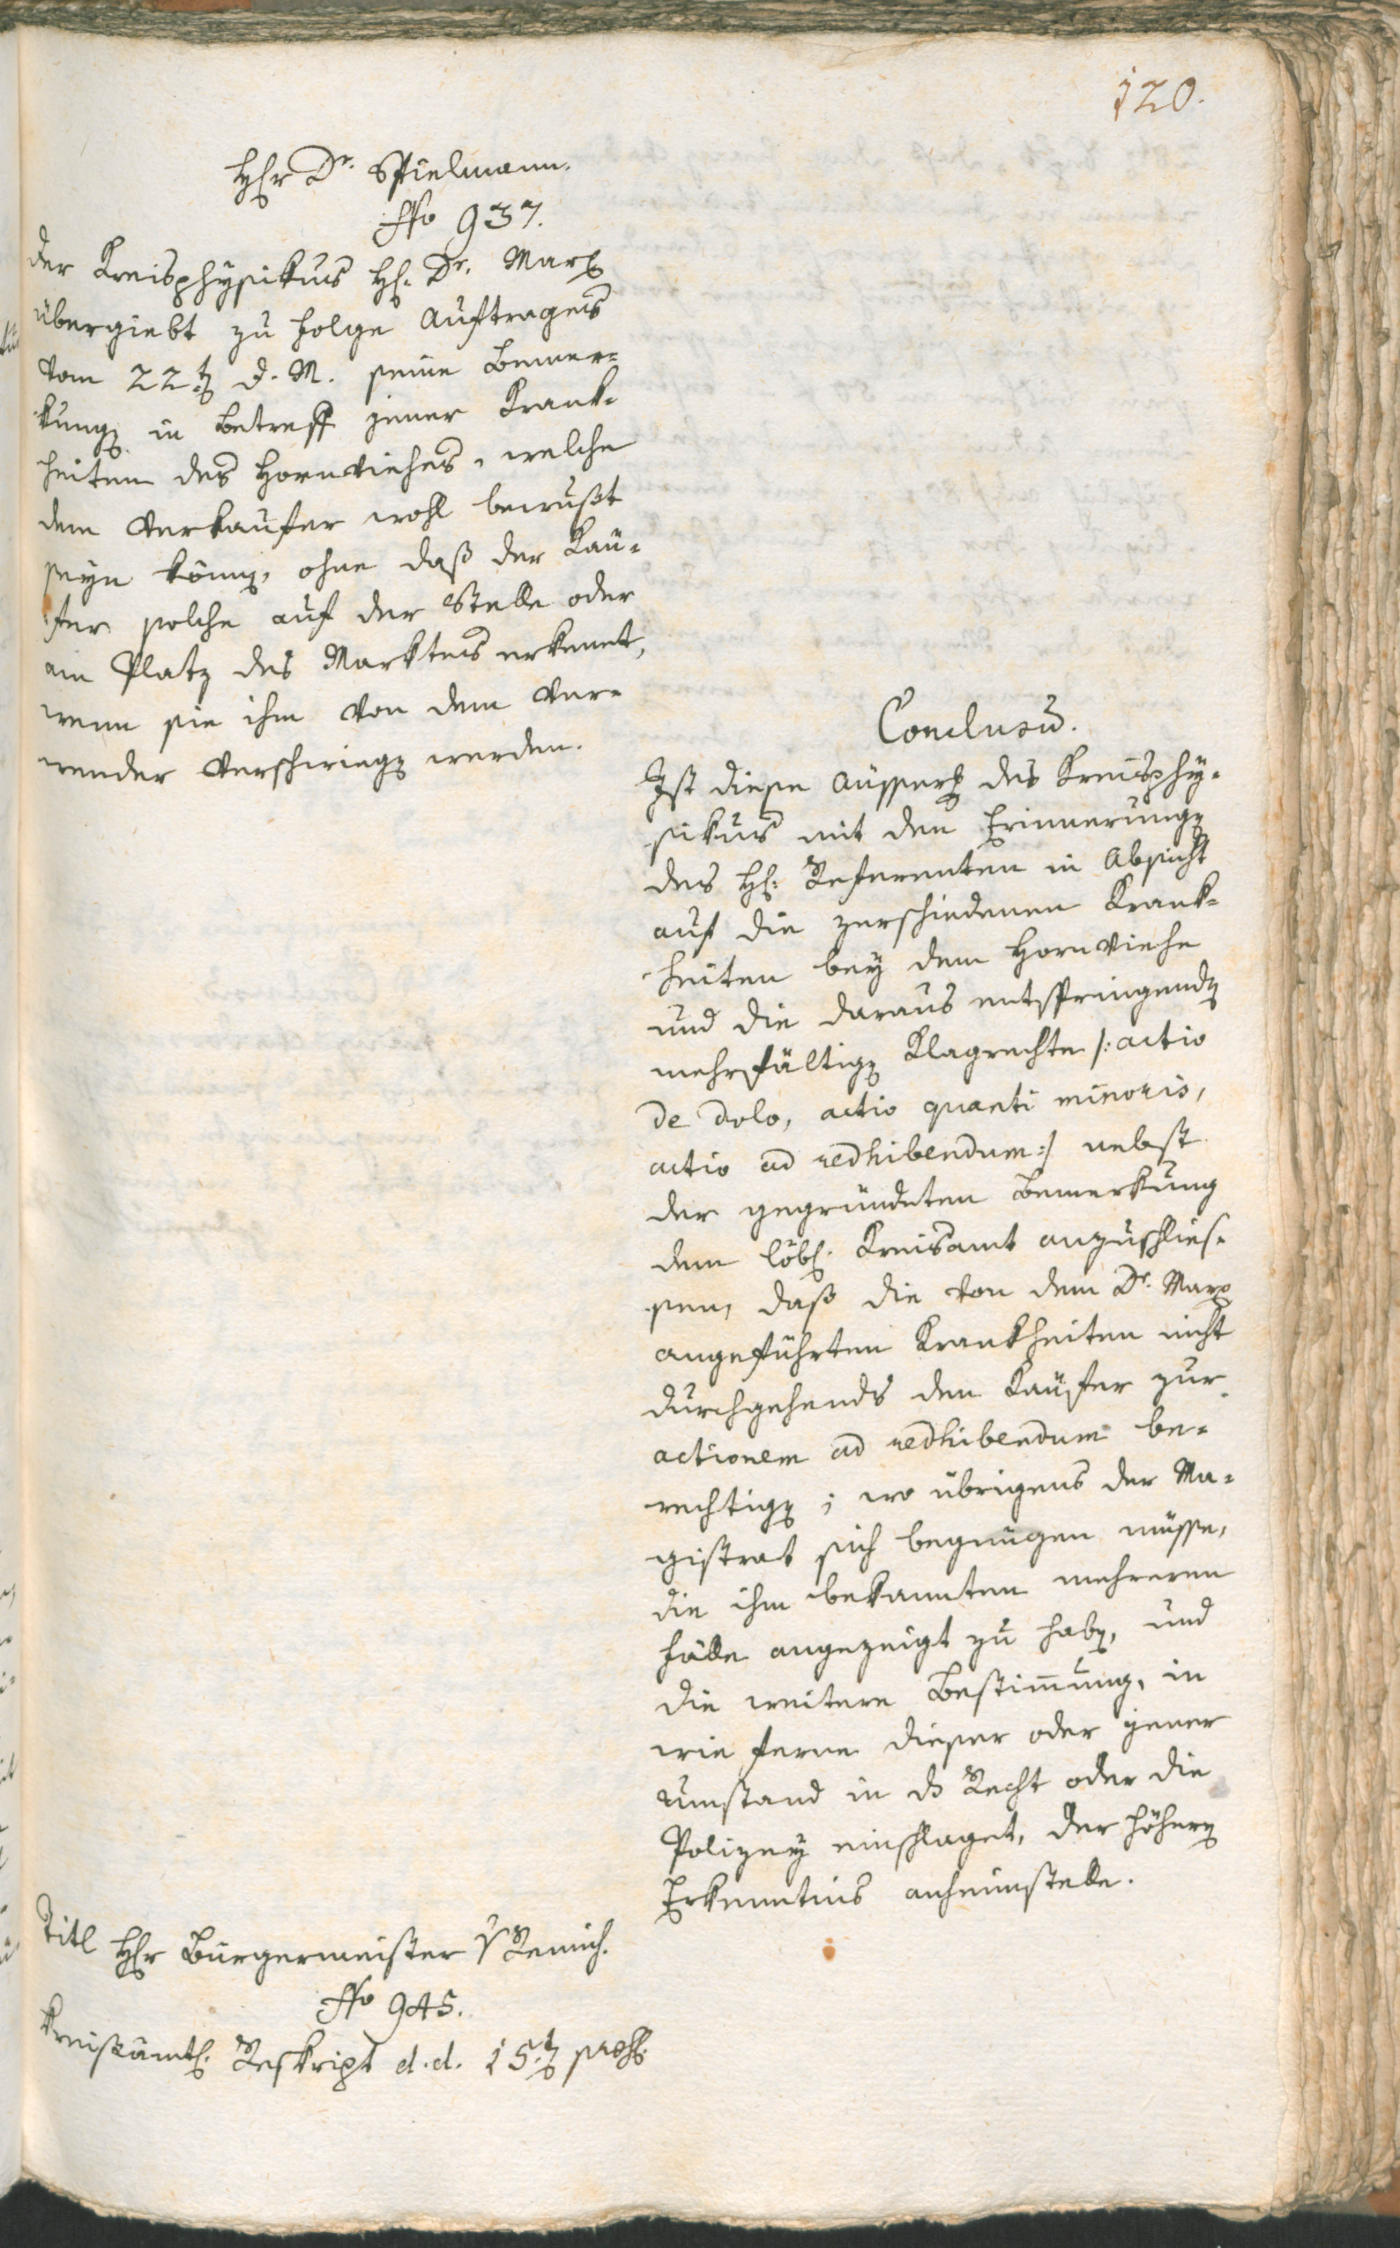 120.
Hr Dr. Spielmann.
No 937.
Der Kreisphysikus H: Dr. Marx
übergiebt zu Folge Auftrages
vom 22t d. M. seine Bemer-
kung in Betreff jener Krank-
heiten des Hornviehes, welche
dem Verkaufer wohl bewußt
seyn könn, ohne daß der Kau-
fer solche auf der Stelle oder
am Platz des Marktes erkennt,
wenn sie ihm von dem Ver-
wender verschwieg werden.
Conclusu.
Ist diese Äusser des Kreisphy-
sikus mit den Erinnerung
des H: Referenten in Absicht
auf die zerschiedenen Krank-
heiten bey dem Hornviehe
und die daraus entspringend
mehrfältig Klagrechte /: actio
de dolo, actio quanti minoris,
actio ad redhibendum :/ nebst
der gegründeten Bemerkung
dem löbl. Kreisamt anzuschlies-
sen, daß die von dem Dr. Marx
angeführten Krankheiten nicht
durchgehends den Käufer zur
actionem ad redhibendum be-
rechtig; wo übrigens der Ma-
gistrat sich begnügen müsse,
die ihm bekannten mehreren
Fälle angezeigt zu hab, und
die weitere Bestimmung, in
wie ferne dieser oder jener
Umstand in ds Recht oder die
Polizey einschlaget, der höhern
Erkenntnis anheimstelle.
Titl Hr Bürgermeister v Remich.
No 945.
Kreisämtl. Reskript d. d. 15t